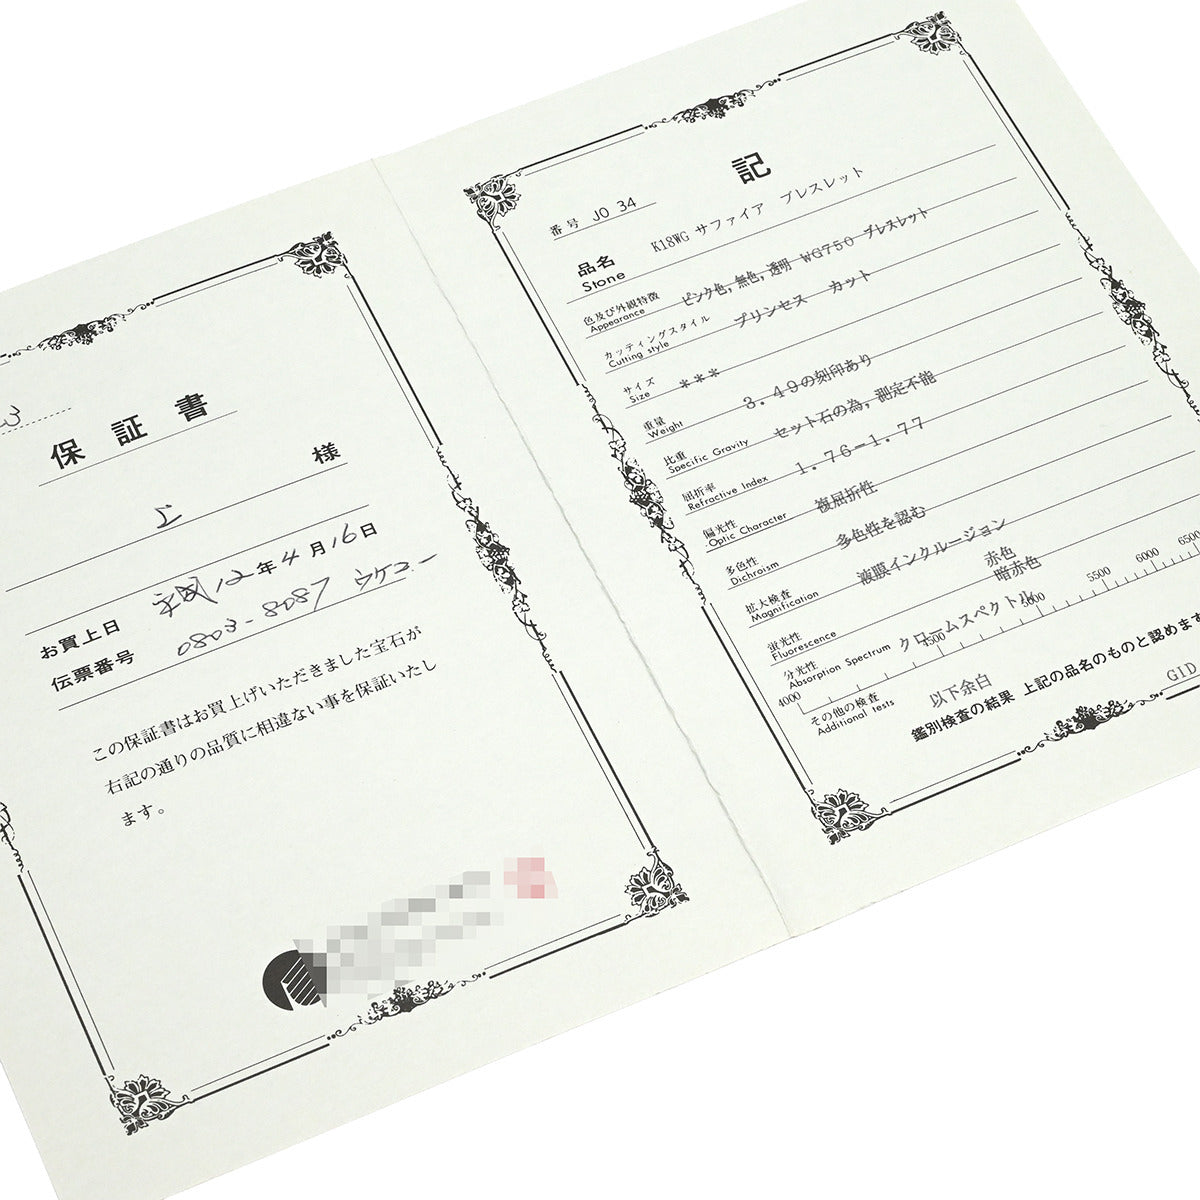 保証書
様
お買上日 平成12年4月16日
伝票番号 0803-8087 ウケユー
この保証書はお買上げいただきました宝石が
右記の通りの品質に相違ない事を保証いたし
ます。
記
番号 JO 34
品名 Stone K18WG サファイア ブレスレット
色及び外観特徴 Appearance ピンク色,無色,透明 WG750 ブレスレット
カッティングスタイル Cutting style プリンセス カット
サイズ Size ***
重量 Weight 3.49の刻印あり
比重 Specific Gravity セット石の為,測定不能
屈折率 Refractive Index 1.76-1.77
偏光性 Optic Character 複屈折性
多色性 Dichroism 多色性を認む
拡大検査 Magnification 液膜インクルージョン
蛍光性 Fluorescence 赤色 暗赤色
分光性 Absorption Spectrum クロームスペクトル
4000 4500 5000 5500 6000 6500
その他の検査 Additional tests 以下余白
鑑別検査の結果 上記の品名のものと認めます
GID